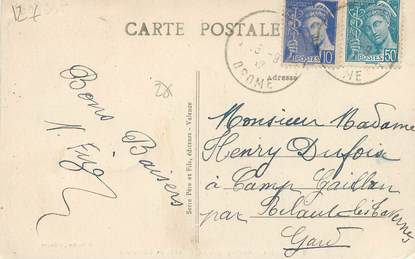 CARTE POSTALE
POSTES 10
POSTES 50
DROME
DROME
Adresse
Bons Baisers
Serre Père et Fils, éditeurs - Valence
Monsieur Madame
Henry Dufoix
à Camp Gaillan
par les Tavernes
Gard